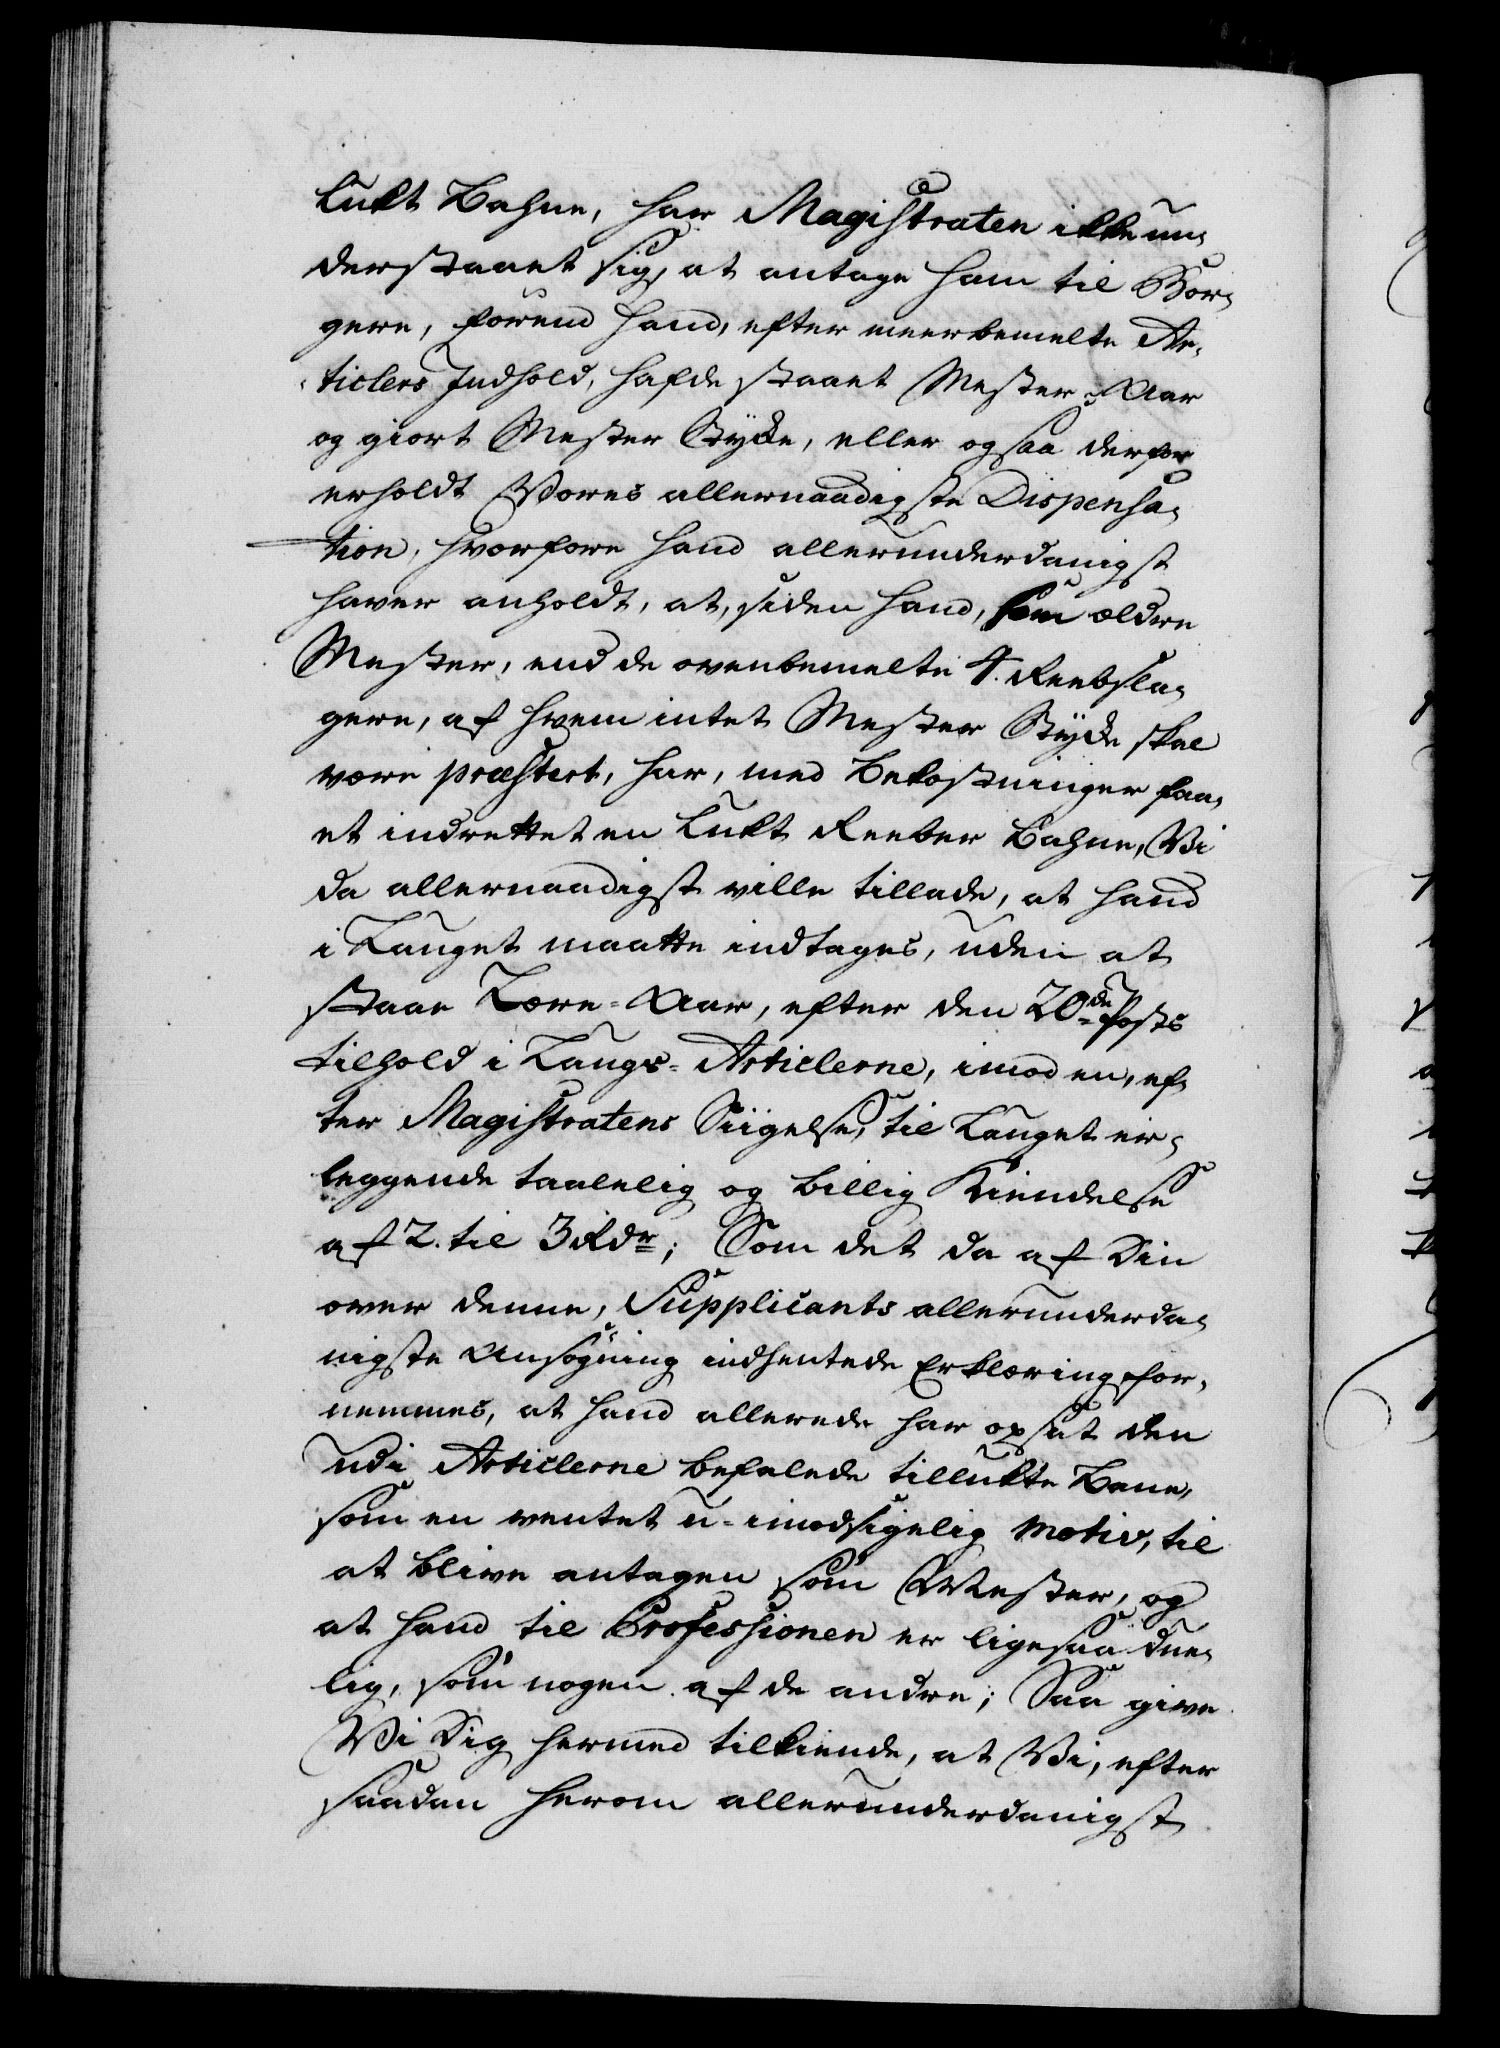 lukt Bahne, har Magistraten ikke un¬
derstaaet sig, at antage ham til Bor¬
gere, førend hand, efter meerbemelte Ar¬
ticlers Indhold, hafde staaet Mester-Aar
og giort Mester Stykke, eller ogsaa derfor
erholdt Vores allernaadigste Dispensa¬
tion, hvorfore hand allerunderdanigst
haver anholdt, at, siden hand, som ældre
Mester, end de ovenbemelte 4. Reebsla¬
gere, af hvem intet Mester Stykke skal
være præstert, har, med Bekostninger faa¬
et indrettet en lukt Reeber Bahne, Vi
da allernaadigst ville tillade, at hand
i Lauget maatte indtages, uden at
staae Lære-Aar, efter den 20de Posts
tilhold i Laugs-Articlerne, imod en, ef¬
ter Magistratens Siigelse, til Lauget er¬
leggende taalelig og billig Kiendelse
af 2. til 3 Rdr; Som det da af Din
over denne, Supplicants allerunderda¬
nigste Ansøgning indhentede Erklæring for¬
nemmes, at hand allerede har opsat den
udi Articlerne befalede tillukte Bane,
som en ventet u-imodsigelig Motiv, til
at blive antagen som Mester, og
at hand til Professionen er ligesaa due¬
lig, som nogen af de andre; Saa give
Vi Dig hermed tilkiende, at Vi, efter
saadan herom allerunderdanigst